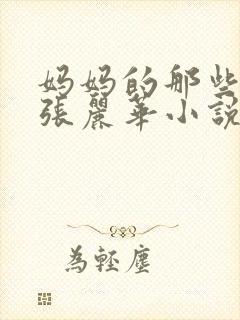 妈妈的那些
張麗華小說
為輕塵